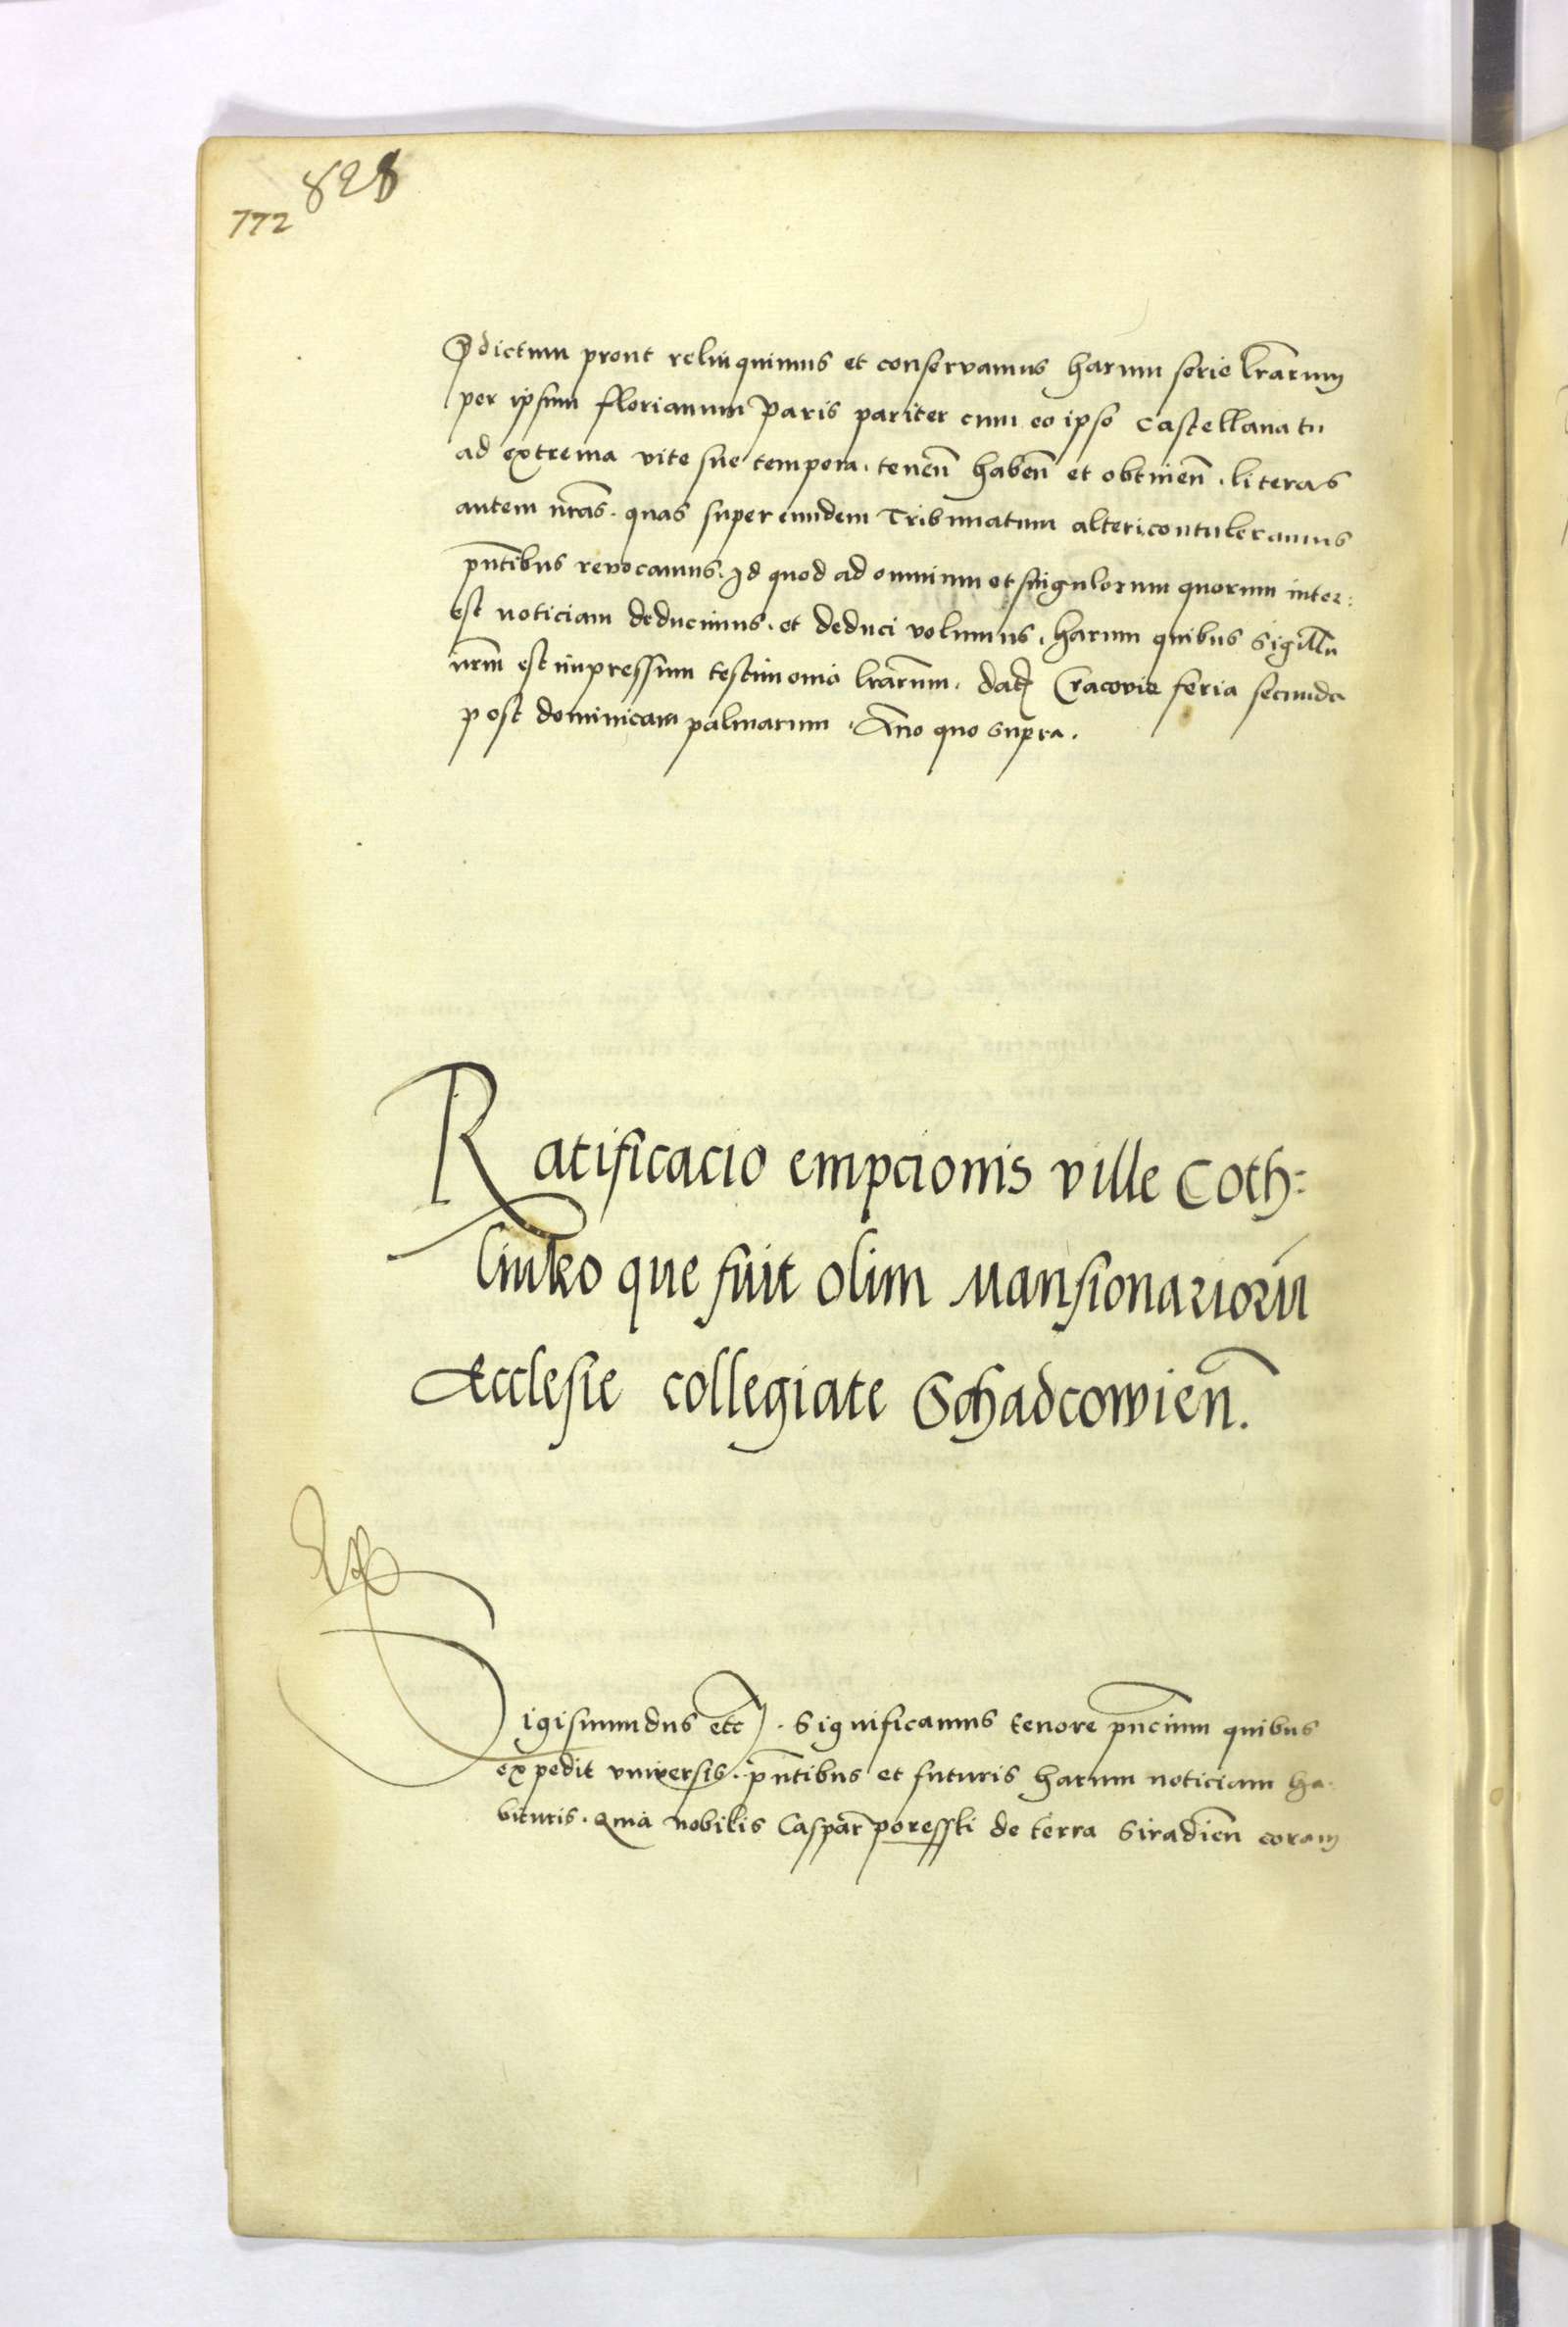 828
772
p̄dictum prout relinquimus et conservamus harum serie lr̄arum
per ipsum florianum Paris pariter cum eo ipso Castellanatu
ad extrema vite sue tempora. tenen̄ haben̄ et obtinen̄. literas
autem nr̄as. quas super eundem Tribunatum alteri contuleramus
pn̄tibus revocamus. Id quod ad omnium et singulorum quorum inter:
est noticiam deducimus. et deduci volumus. harum quibus Sigillu
nr̄m est impressum testimonio lr̄arum. Dat Cracovie feria secunda
post dominicam palmarum. An̄o quo supra.
Ratificacio empcionis ville Coth:
linko que fuit olim Mansionariorū
Ecclesie collegiate Schadcowien̄.
Sigismundus etc. Significamus tenore pn̄cium quibus
expedit universis. pn̄tibus et futuris harum noticiam ha.
bituris. Quia nobilis Caspar poresski de terra Siradien̄ coram